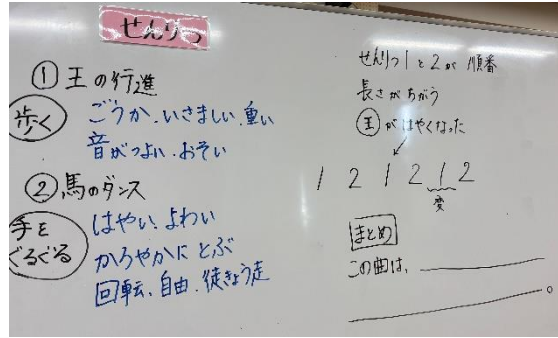 せんりつ
① 王の行進
歩く
ごうか、いさましい、重い
音がつよい、おそい
② 馬のダンス
手を
ぐるぐる
はやい、よわい
かろやかに とぶ
回転、自由、徒きょう走
せんりつ1と2が 順番
長さがちがう
王がはやくなった
1 2 1 2 1 2
変
まとめ
この曲は、
。